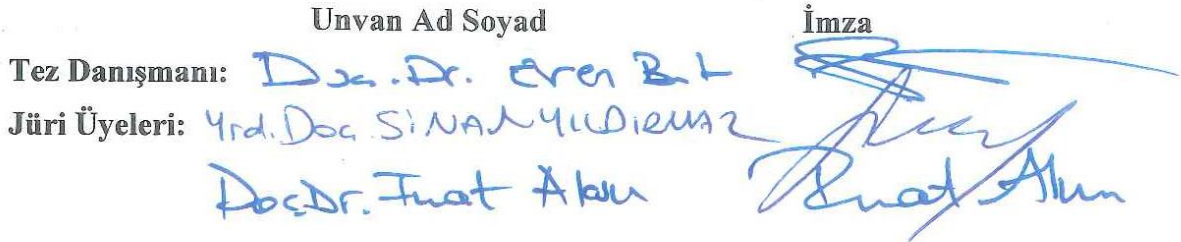 Unvan Ad Soyad İmza
Tez Danışmanı: Doç. Dr. Eren
Jüri Üyeleri: Yrd. Doç. SİNAN YILDIRMAZ
Doç. Dr. Fuat
Fuat